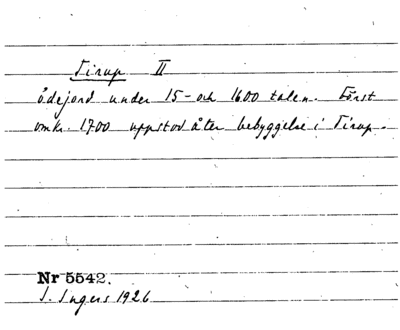 Tirup II
ödejord under 15- och 1600 talen. Först
omkr. 1700 uppstod åter bebyggelse i Tirup.
Nr 5542.
I. Ingers 1926